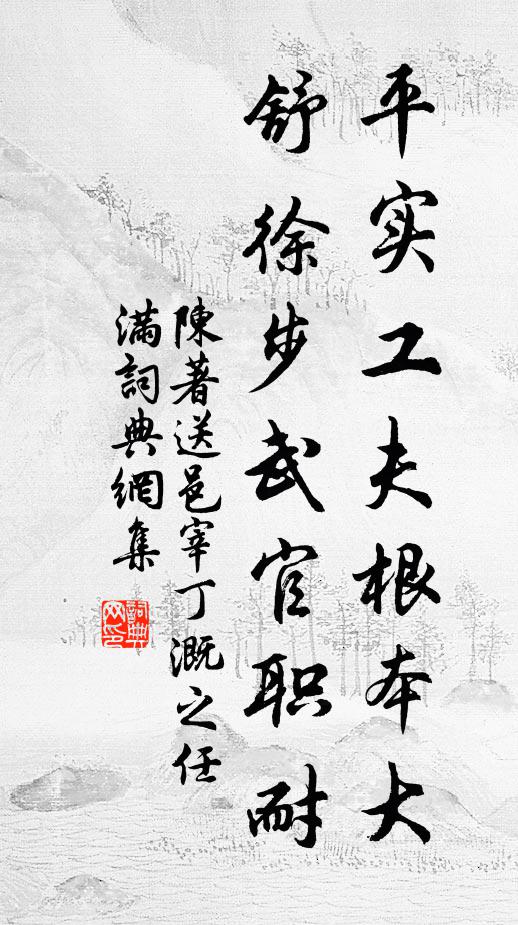 平实工夫根本大
舒徐步武官职耐
陳著送邑宰丁溉之任
满詞典網集
詞典
网印